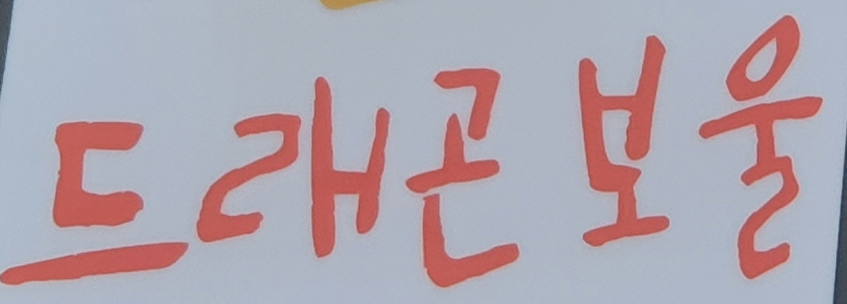 드래곤 보울